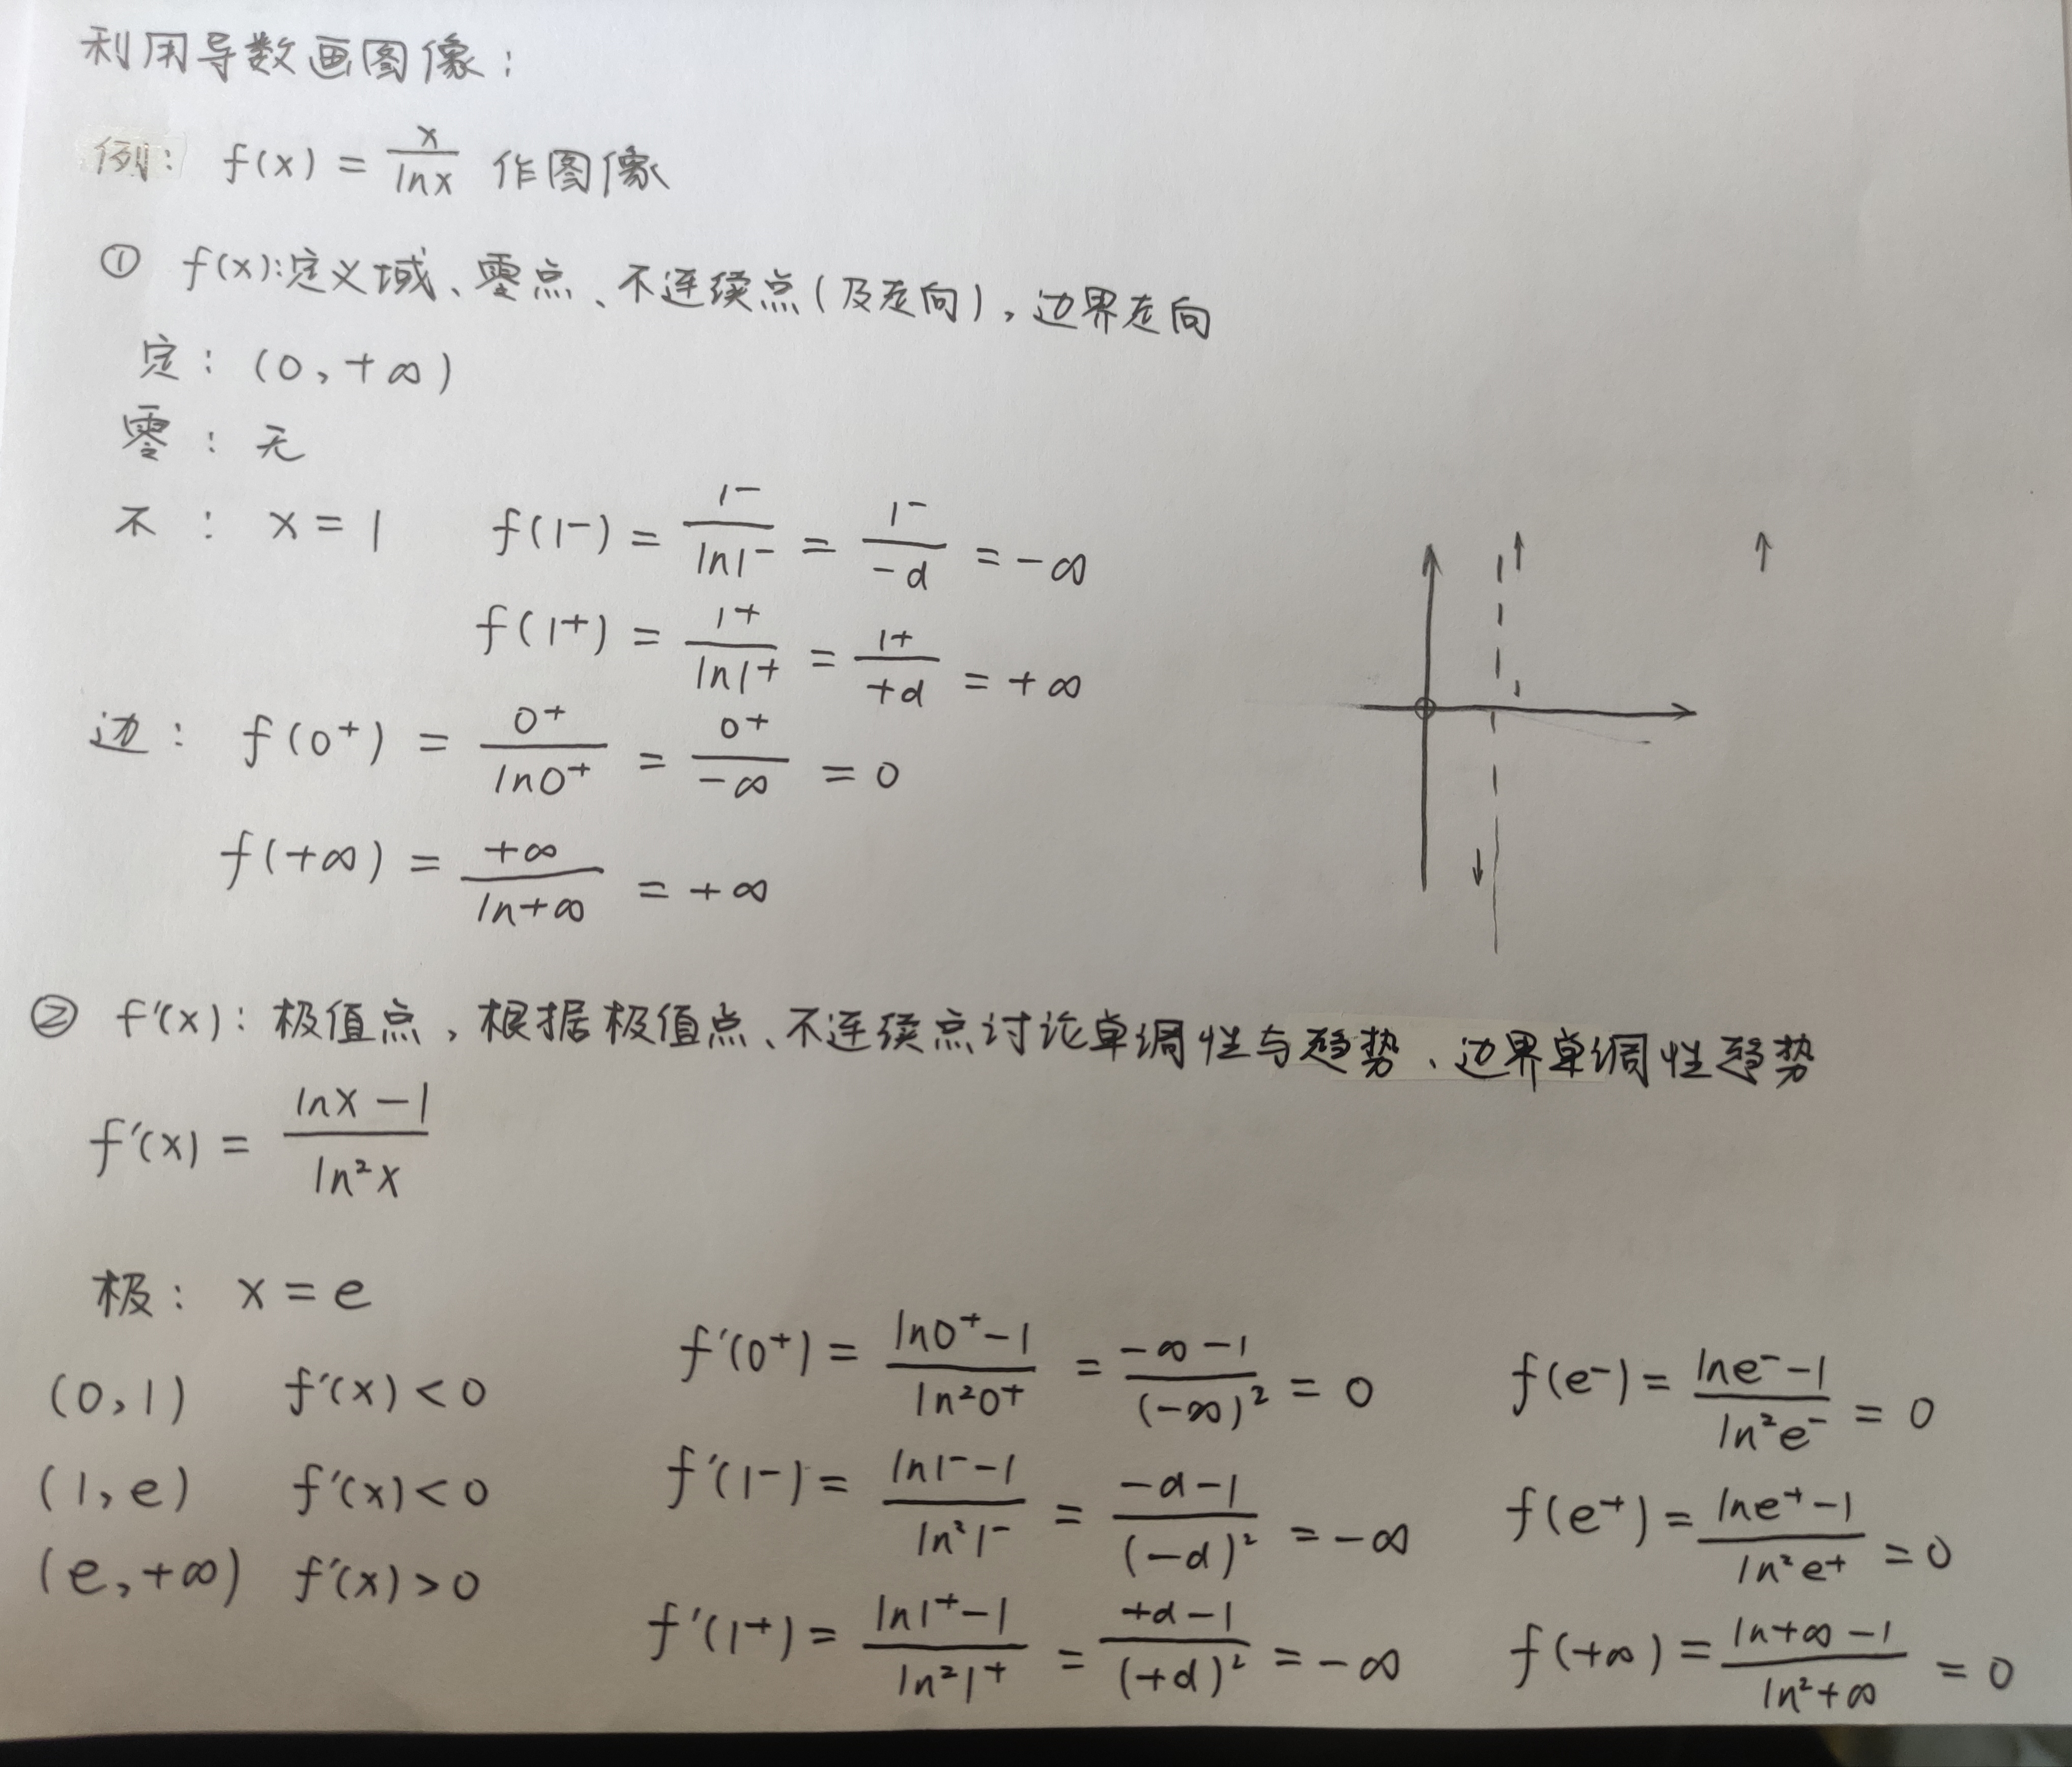 利用导数画图像:
例: f(x) = x/lnx 作图像
① f(x):定义域、零点、不连续点(及走向),边界走向
定: (0,+∞)
零: 无
不: x=1 f(1⁻) = 1⁻/ln1⁻ = 1⁻/-d = -∞
f(1⁺) = 1⁺/ln1⁺ = 1⁺/+d = +∞
边: f(0⁺) = 0⁺/ln0⁺ = 0⁺/-∞ = 0
f(+∞) = +∞/ln+∞ = +∞
② f'(x): 极值点,根据极值点、不连续点讨论单调性与趋势、边界单调性趋势
f'(x) = lnx-1/ln²x
极: x=e
(0,1) f'(x)<0
(1,e) f'(x)<0
(e,+∞) f'(x)>0
f'(0⁺) = ln0⁺-1/ln²0⁺ = -∞-1/(-∞)² = 0
f'(1⁻) = ln1⁻-1/ln²1⁻ = -d-1/(-d)² = -∞
f'(1⁺) = ln1⁺-1/ln²1⁺ = +d-1/(+d)² = -∞
f(e⁻) = lne⁻-1/ln²e⁻ = 0
f(e⁺) = lne⁺-1/ln²e⁺ = 0
f(+∞) = ln+∞-1/ln²+∞ = 0